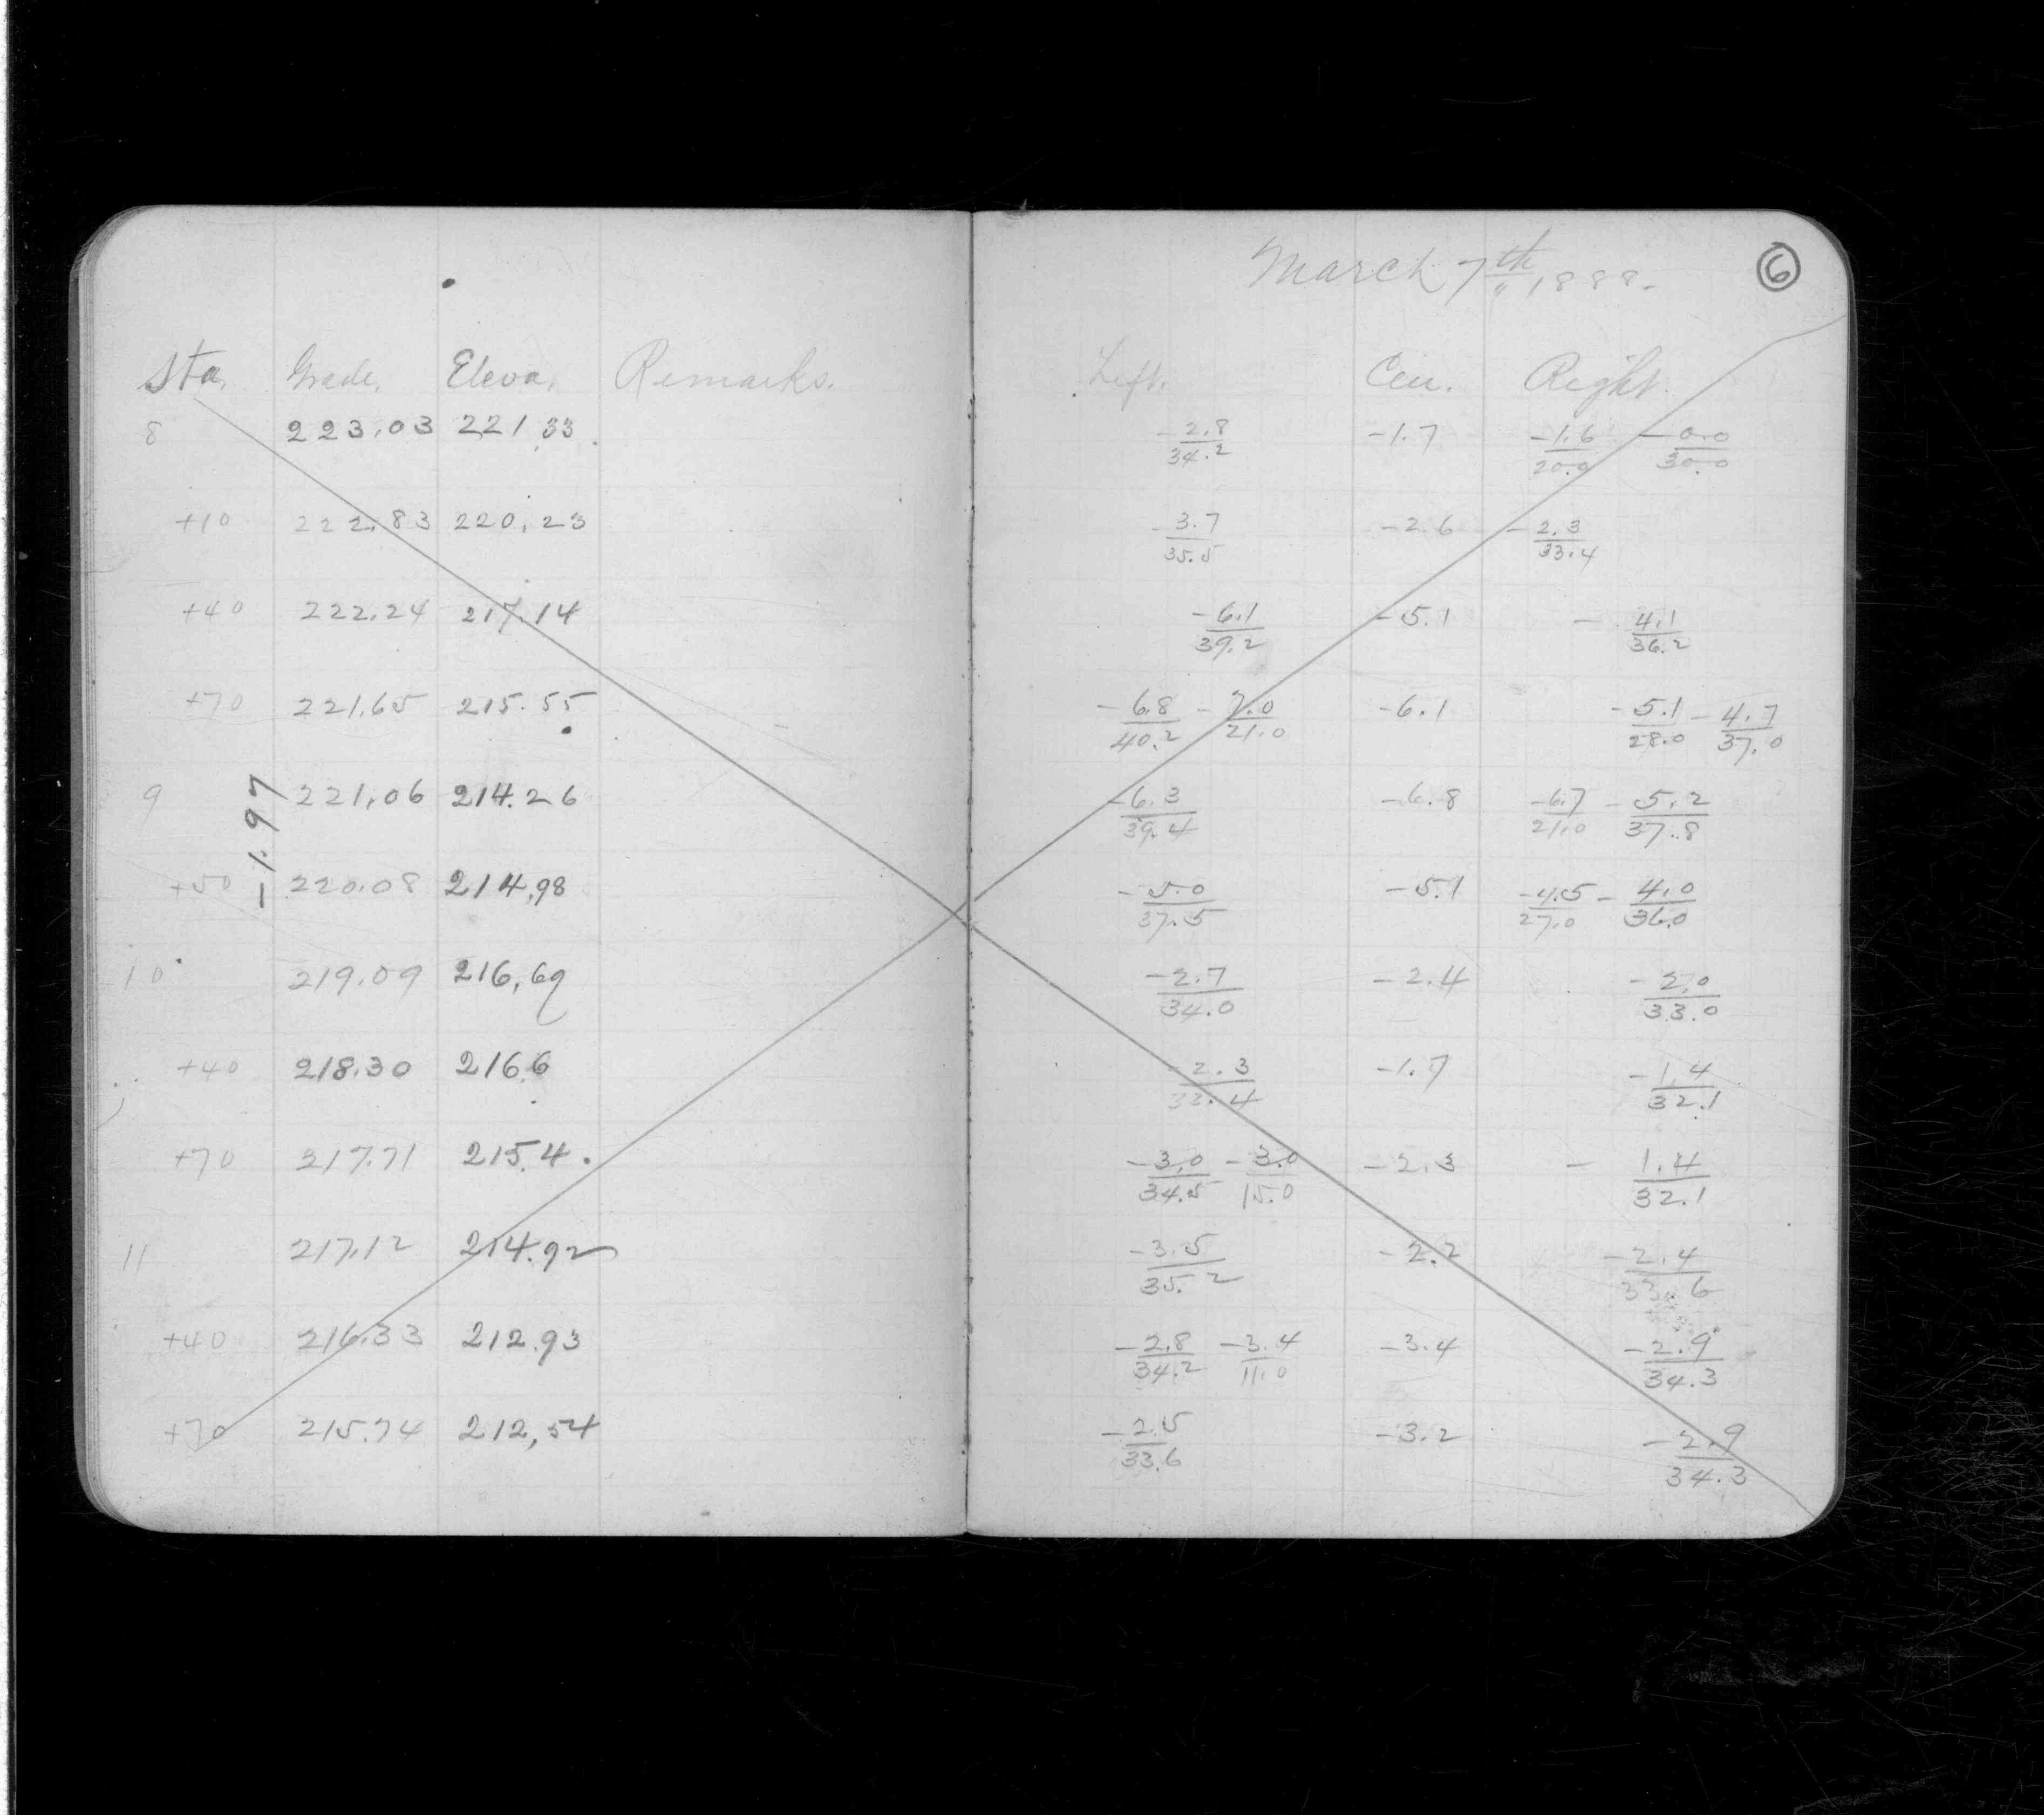 March 7th, 1888. 6
Sta. Grade. Eleva. Remarks. Left. Cen. Right.
8 223.03 221.33 -2.8/34.2 -1.7 -1.6/20.0 -0.0/30.0
+10 222.83 220.23 -3.7/35.5 -2.6 -2.3/33.4
+40 222.24 217.14 -6.1/39.2 -5.1 -4.1/36.2
+70 221.65 215.55 -6.8/40.2 -7.0/21.0 -6.1 -5.1/28.0 -4.7/37.0
9 221.06 214.26 -6.3/39.4 -6.8 -6.7/21.0 -5.2/37.8
-1.97
+50 220.08 214.98 -5.0/37.5 -5.1 -4.5/27.0 -4.0/36.0
10 219.09 216.69 -2.7/34.0 -2.4 -2.0/33.0
+40 218.30 216.6 -2.3/33.4 -1.7 -1.4/32.1
+70 217.71 215.4. -3.0/34.5 -3.0/15.0 -2.3 -1.4/32.1
11 217.12 214.92 -3.5/35.2 -2.2 -2.4/33.6
+40 216.33 212.93 -2.8/34.2 -3.4/11.0 -3.4 -2.9/34.3
+70 215.74 212.54 -2.5/33.6 -3.2 -2.9/34.3